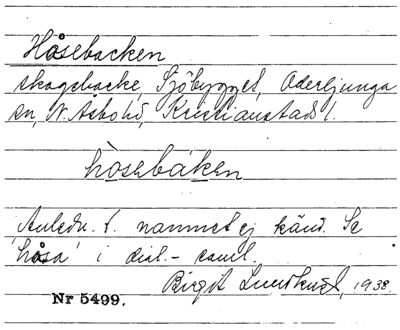 Håsebacken
skogsbacke, Sjöbygget, Oderljunga
sn, N. Åsbo hd, Kristianstads l.
hòsebáken
Anledn. t. namnet ej känd. Se
'håsa' i dial.- saml.
Birgit 1938.
Nr 5499.